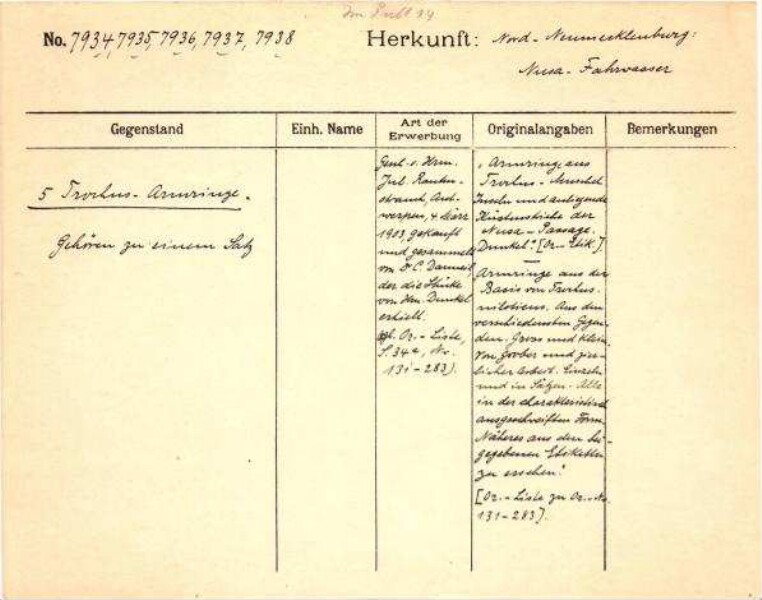 No. 7934, 7935, 7936, 7937, 7938
Herkunft: Nord-Neumecklenburg:
Nusa-Fahrwasser
Gegenstand
Einh. Name
Art der
Erwerbung
Originalangaben
Bemerkungen
5 Trochus-Armringe.
Gehören zu einem Satz
Gesch. v. Hrn.
Jul. Rauten-
strauch, Ant-
werpen, 4. März
1903, gekauft
und gesammelt
von Dr C. Danneil,
der die Stücke
von Hrn. Dunkel
erhielt.
vgl. Or.-Liste,
S. 34a, No.
131-283).
"Armringe aus
Trochus-Muschel
Inseln und anliegende
Küstenstriche der
Nusa-Passage.
Dunkel". [Or-Etik.].
"Armringe aus der
Basis von Trochus
niloticus. Aus den
verschiedensten Gegen-
den. Gross und klein
von grober und zier-
licher Arbeit. Einzeln
und in Sätzen. Alle
in der charakteristisch
ausgeschweiften Form
Näheres aus den bei-
gegebenen Etiketten
zu ersehen."
[Or.-Liste zu Or.-No
131-283].